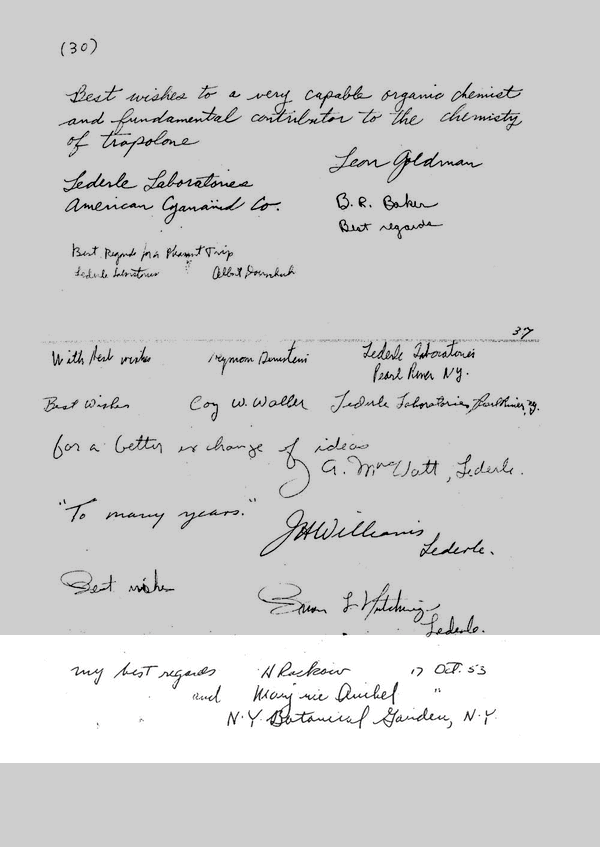 (30)
Best wishes to a very capable organic chemist
and fundamental contributor to the chemisty
of tropolone
Leon Goldman
Lederle Laboratories
American Cyanamid Co.
B. R. Baker
Best regards
Best Regards for a Pleasant Trip
Lederle Laboratories Albert
37
With best wishes Seymour Bernstein Lederle Laboratories
Pearl River N.Y.
Best Wishes Coy W. Waller Lederle Laboratories, Pearl River, N.Y.
for a better exchange of ideas
G. , Lederle.
"To many years."
JHWilliams
Lederle.
Best wishes
L Hutchings
Lederle.
my best regards 17 Oct. 53
and Marjorie Anchel "
N.Y. Botanical Garden, N.Y.